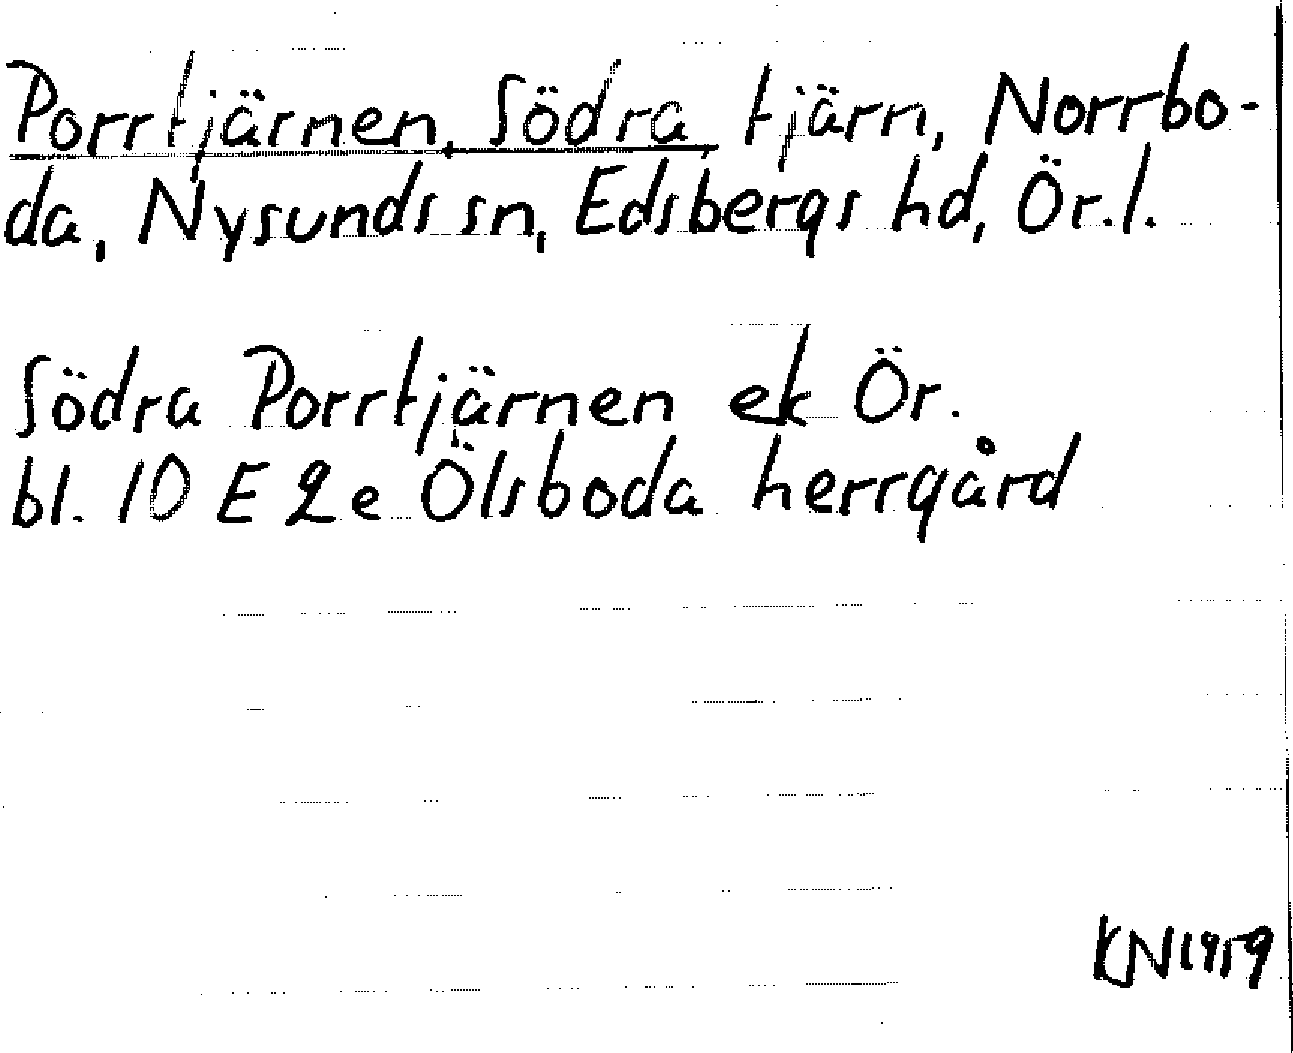 Porrtjärnen, Södra, tjärn, Norrbo-
da, Nysunds sn, Edsbergs hd, Ör. l.
Södra Porrtjärnen ek Ör.
bl. 10 E 2 e Ölsboda herrgård
KN 1959